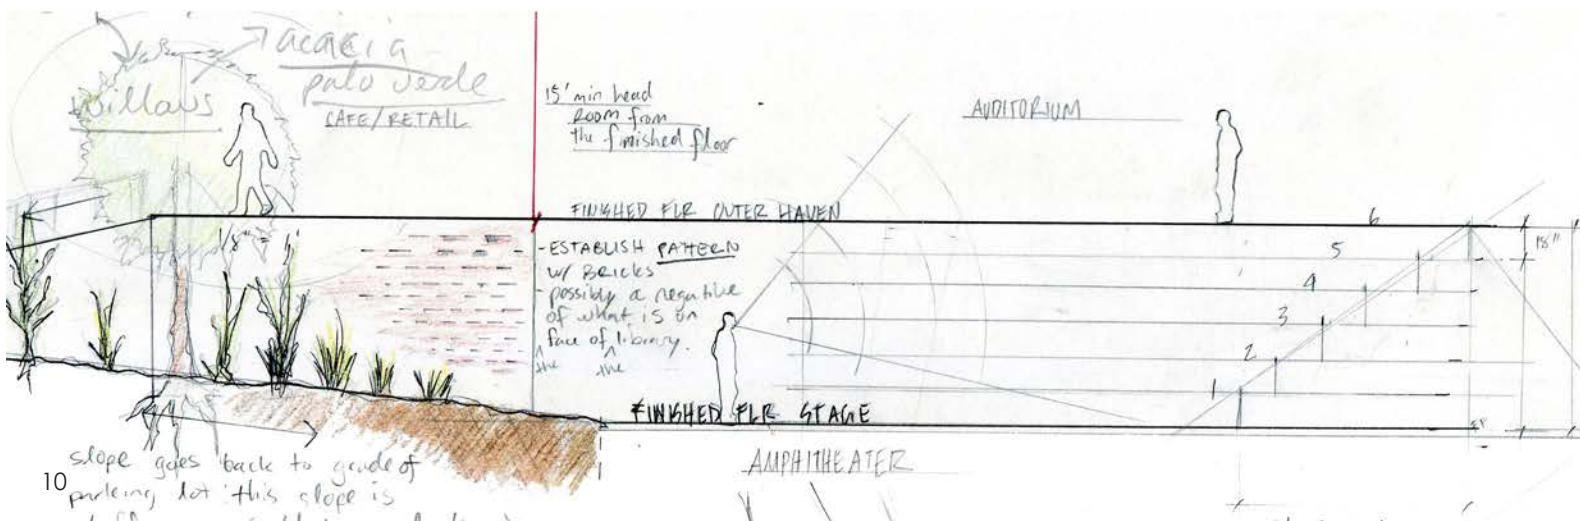 acacia
palo verde
willows
CAFE/RETAIL
15' min head
room from
the finished floor
AUDITORIUM
FINISHED FLR OUTER HAVEN
1/8" = 1'
- ESTABLISH PATTERN
w/ BRICKS
- possibly a negative
of what is on
face of library.
the the
6
5
4
3
2
1
18"
FINISHED FLR STAGE
AMPHITHEATER
slope goes back to grade of
parking lot this slope is
10